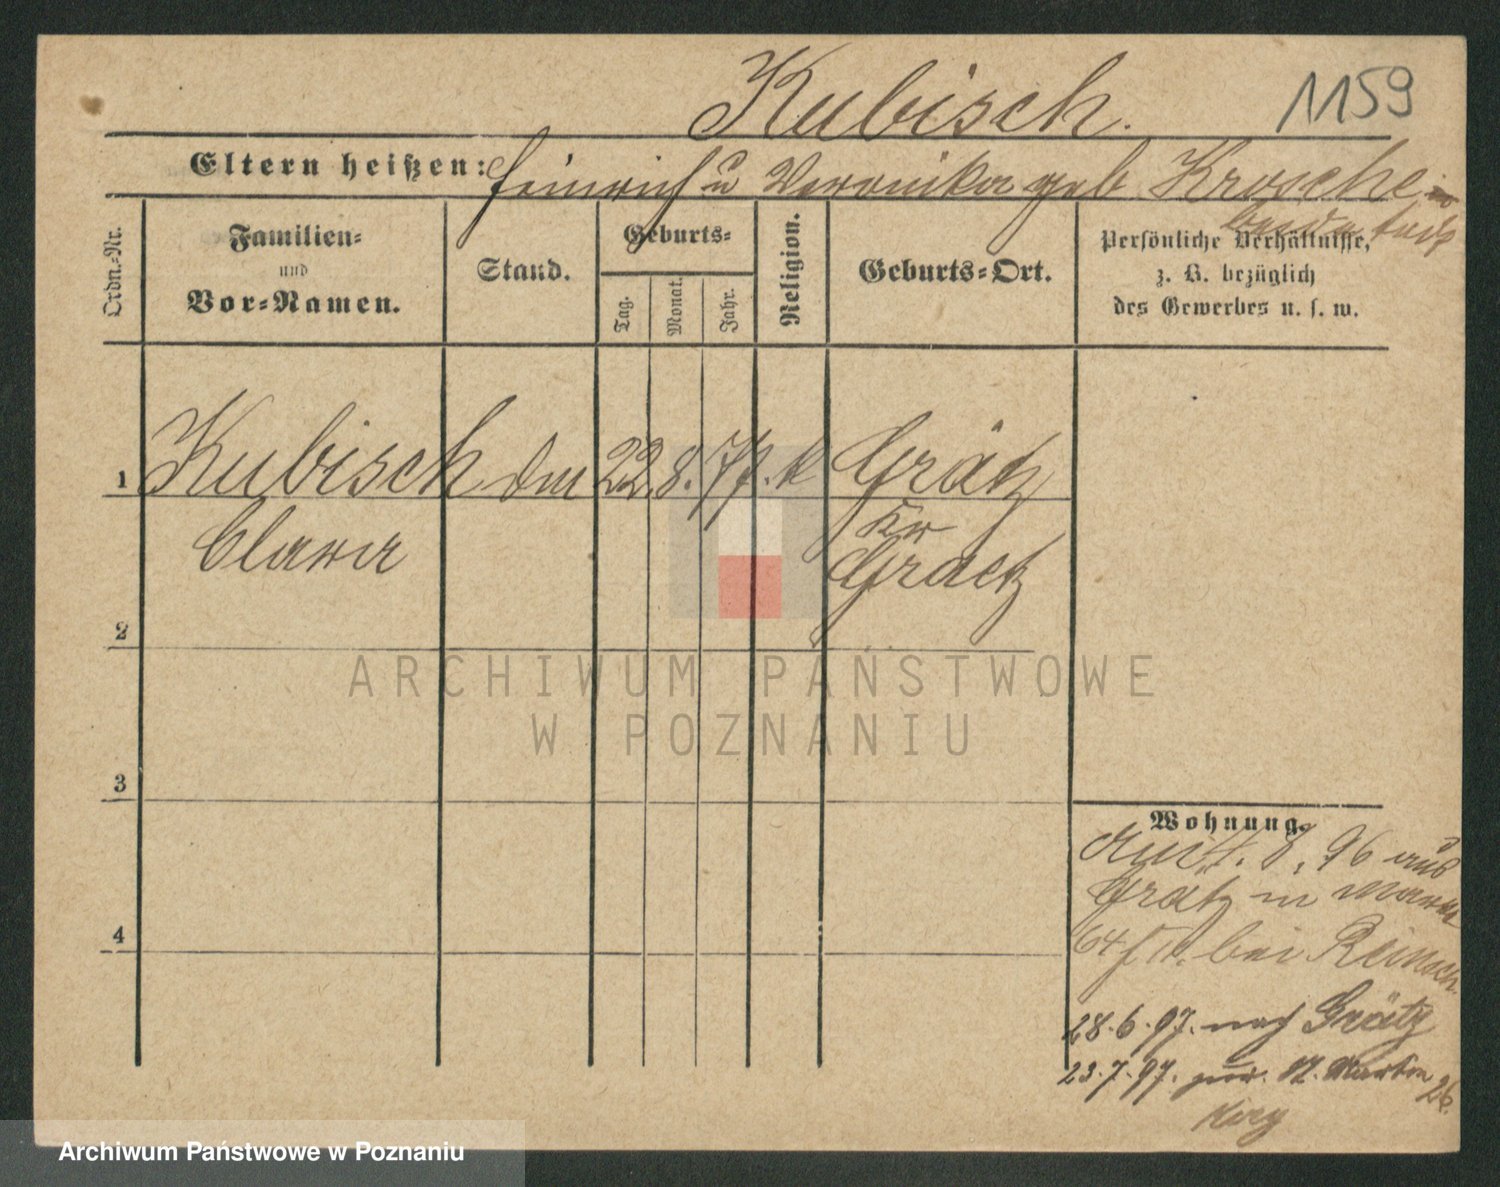 Kubisch.
1159
Eltern heißen: Heinrich u Veronika geb Krosche
beide todt
Ordn.-Nr.
Familien-
und
Vor-Namen.
Stand.
Geburts-
Tag.
Monat.
Jahr.
Religion.
Geburts-Ort.
Persönliche Verhältnisse,
z. B. bezüglich
des Gewerbes u. s. w.
1 Kubisch 22. 8. 77. k Grätz
Clara Kr
Graetz
2
3
4
Wohnung.
8. 96 aus
Grätz in
64 bei
28.6.97. nach Grätz
23.7.97. zur. St. Martin 26.
ARCHIWUM PAŃSTWOWE
W POZNANIU
Archiwum Państwowe w Poznaniu